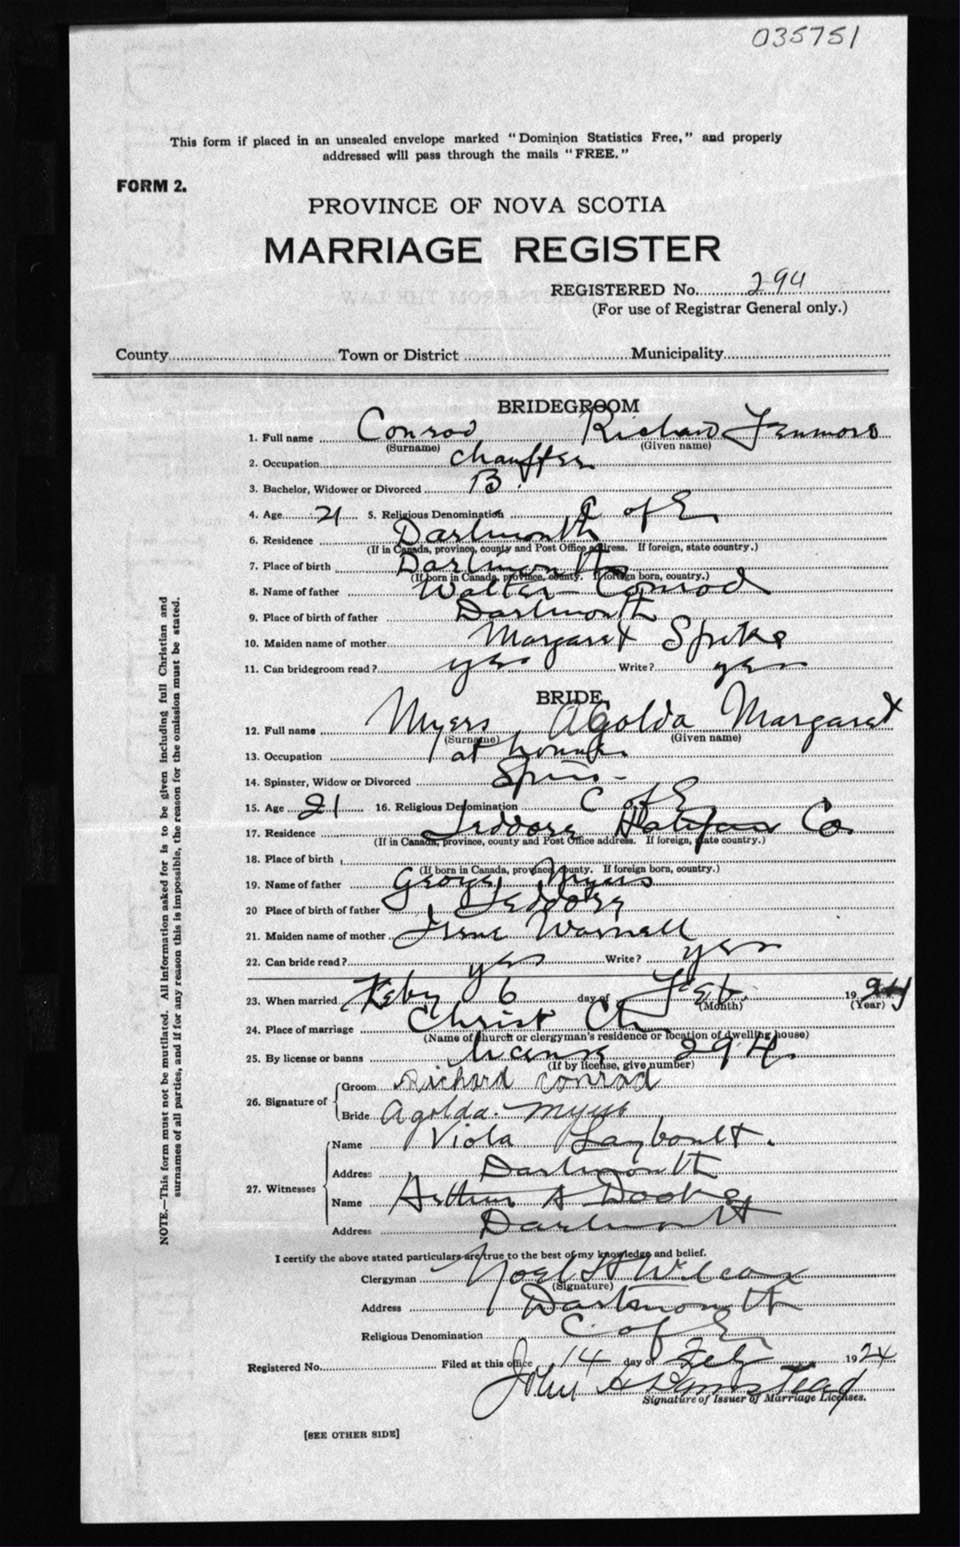 035751
This form if placed in an unsealed envelope marked "Dominion Statistics Free," and properly
addressed will pass through the mails "FREE."
FORM 2.
PROVINCE OF NOVA SCOTIA
MARRIAGE REGISTER
REGISTERED No. 294
(For use of Registrar General only.)
County Town or District Municipality
BRIDEGROOM
1. Full name Conrad Richard
(Surname) (Given name)
2. Occupation chauffer
3. Bachelor, Widower or Divorced B.
4. Age 21 5. Religious Denomination C of E
6. Residence Dartmouth
(If in Canada, province, county and Post Office address. If foreign, state country.)
7. Place of birth Dartmouth
(If born in Canada, province, county. If foreign born, country.)
8. Name of father Walter Conrad
9. Place of birth of father Dartmouth
10. Maiden name of mother Margaret Spike
11. Can bridegroom read? yes Write? yes
BRIDE
12. Full name Myers Agolda Margaret
(Surname) (Given name)
13. Occupation at home
14. Spinster, Widow or Divorced Spins-
15. Age 21 16. Religious Denomination C of E
17. Residence Jeddore Halifax Co
(If in Canada, province, county and Post Office address. If foreign, state country.)
18. Place of birth
(If born in Canada, province, county. If foreign born, country.)
19. Name of father George Myers
20 Place of birth of father Jeddore
21. Maiden name of mother Irene Warnell
22. Can bride read? yes Write? yes
23. When married 6 day of Feb. 1924
(Month) (Year)
24. Place of marriage Christ Ch
(Name of church or clergyman's residence or location of dwelling house)
25. By license or banns license 294.
(If by license, give number)
26. Signature of Groom Richard Conrad
Bride Agolda. Myers
27. Witnesses Name Viola Layboult.
Address Dartmouth
Name Arthur A
Address Dartmouth
I certify the above stated particulars are true to the best of my knowledge and belief.
Clergyman Noel H Wilcox
(Signature)
Address Dartmouth
Religious Denomination C. of E
Registered No. Filed at this office 14 day of Feby 1924
John
Signature of Issuer of Marriage Licenses.
[SEE OTHER SIDE]
NOTE.—This form must not be mutilated. All information asked for is to be given including full Christian and
surnames of all parties, and if for any reason this is impossible, the reason for the omission must be stated.